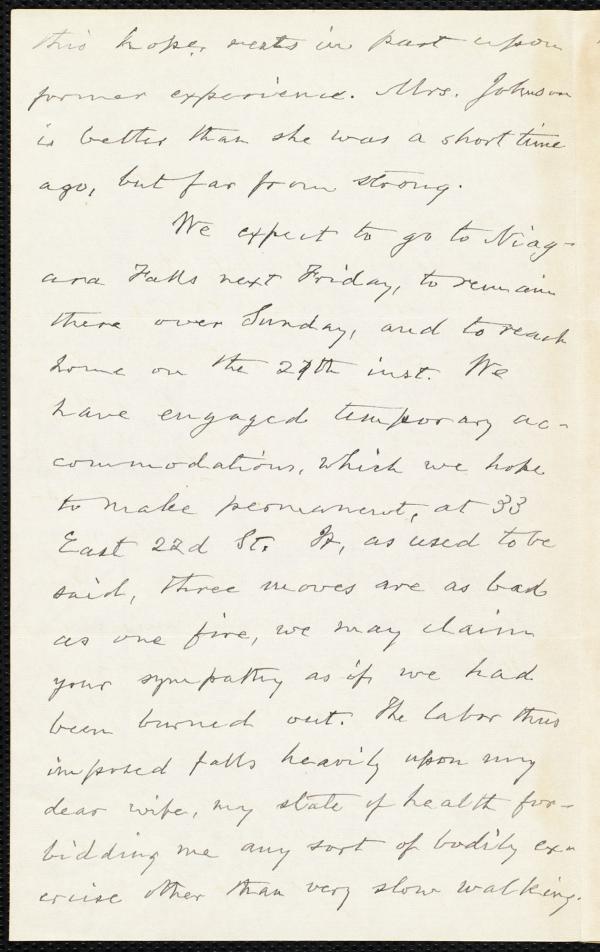 this hope, rests in part upon
former experience. Mrs. Johnson
is better than she was a short time
ago, but far from strong.
We expect to go to Niag-
ara Falls next Friday, to remain
there over Sunday, and to reach
home on the 27th inst. We
have engaged temporary ac-
commodations, which we hope
to make permanent, at 33
East 22d St. If, as used to be
said, three moves are as bad
as one fire, we may claim
your sympathy as if we had
been burned out. The labor thus
imposed falls heavily upon my
dear wife, my state of health for-
bidding me any sort of bodily ex-
ercise other than very slow walking.